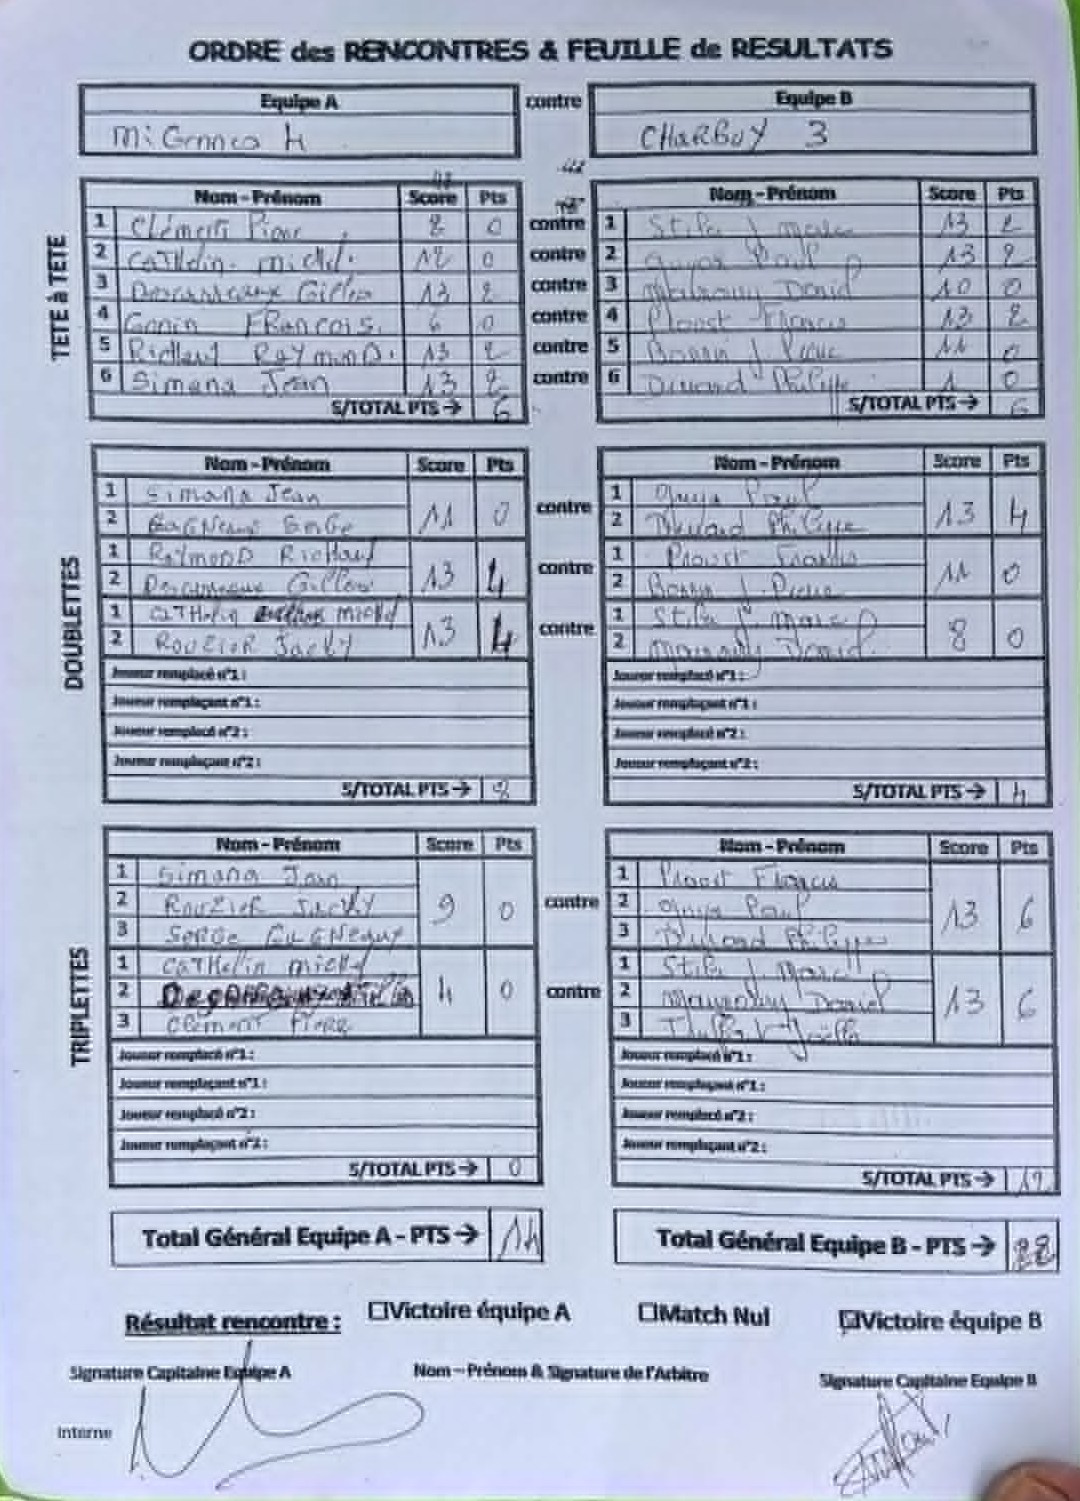 ORDRE des RENCONTRES & FEUILLE de RESULTATS
Equipe A contre Equipe B
Migennes 4 CHARBUY 3
TETE à TETE
Nom - Prénom Score Pts Nom - Prénom Score Pts
1 Clément Pierre 8 0 contre 1 Stifa J Marc 13 2
2 CATHelin Michel 12 0 contre 2 Guya Paul 13 2
3 Gilles 13 2 contre 3 Daniel 10 0
4 Gonin FRANÇOIS 6 0 contre 4 Francis 13 2
5 Richaut RAYMOND 13 2 contre 5 J. Pierre 11 0
6 Simana Jean 13 2 contre 6 Durand Philippe 1 0
S/TOTAL PTS → 6 S/TOTAL PTS → 6
DOUBLETTES
Nom - Prénom Score Pts Nom - Prénom Score Pts
1 Simana Jean 11 0 contre 1 Guya Paul 13 4
2 2 Durand Philippe
1 RAYMOND Richaut 13 4 contre 1 Francis 11 0
2 Gilles 2 J. Pierre
1 CATHelin michel 13 4 contre 1 Stifa J. Marc 8 0
2 ROUZIER Jacky 2 Daniel
Joueur remplacé n°1 : Joueur remplacé n°1 :
Joueur remplaçant n°1 : Joueur remplaçant n°1 :
Joueur remplacé n°2 : Joueur remplacé n°2 :
Joueur remplaçant n°2 : Joueur remplaçant n°2 :
S/TOTAL PTS → 8 S/TOTAL PTS → 4
TRIPLETTES
Nom - Prénom Score Pts Nom - Prénom Score Pts
1 Simana Jean 9 0 contre 1 Francis 13 6
2 ROUZIER JACKY 2 Guya Paul
3 SERGE 3 Durand Philippe
1 CATHelin michel 4 0 contre 1 Stifa J. Marc 13 6
2 2 Daniel
3 Clément Pierre 3 Joëlle
Joueur remplacé n°1 : Joueur remplacé n°1 :
Joueur remplaçant n°1 : Joueur remplaçant n°1 :
Joueur remplacé n°2 : Joueur remplacé n°2 :
Joueur remplaçant n°2 : Joueur remplaçant n°2 :
S/TOTAL PTS → 0 S/TOTAL PTS → 12
Total Général Equipe A - PTS → 14 Total Général Equipe B - PTS → 22
Résultat rencontre : ☐Victoire équipe A ☐Match Nul ☑Victoire équipe B
Signature Capitaine Equipe A Nom – Prénom & Signature de l'Arbitre Signature Capitaine Equipe B
Interne